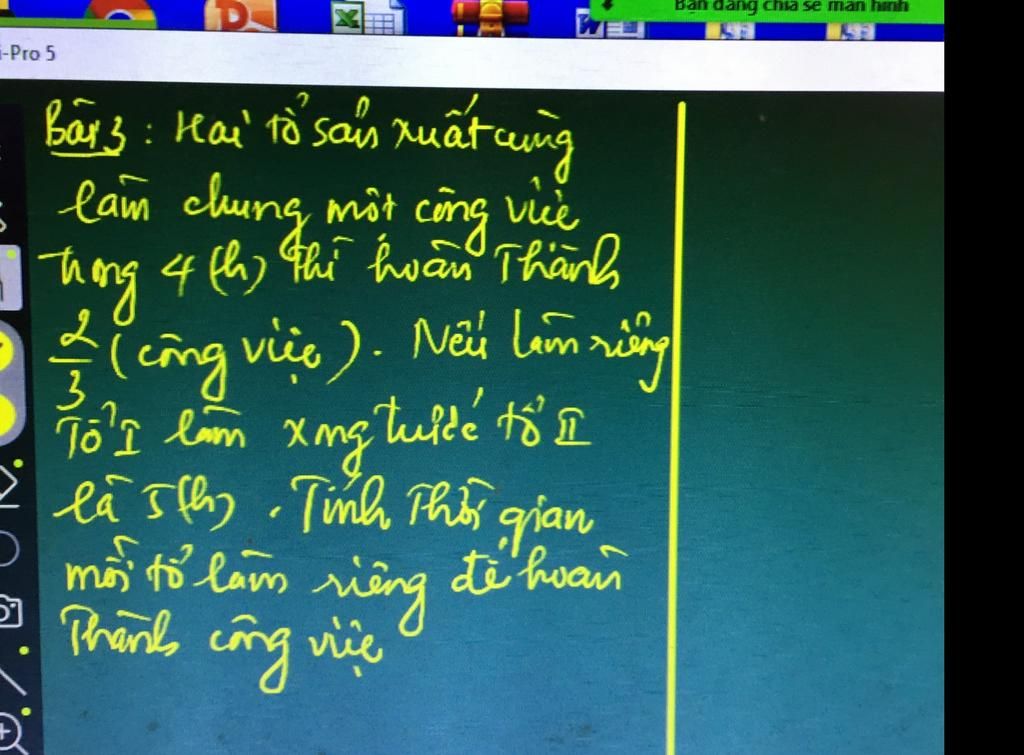 Bạn đang chia sẻ màn hình
i-Pro 5
Bài 3 : Hai tổ sản xuất cùng
làm chung một công việc
trong 4 (h) thì hoàn thành
2/3 (công việc). Nếu làm riêng
Tổ I làm xong trước tổ II
là 5(h). Tính thời gian
mỗi tổ làm riêng để hoàn
thành công việc